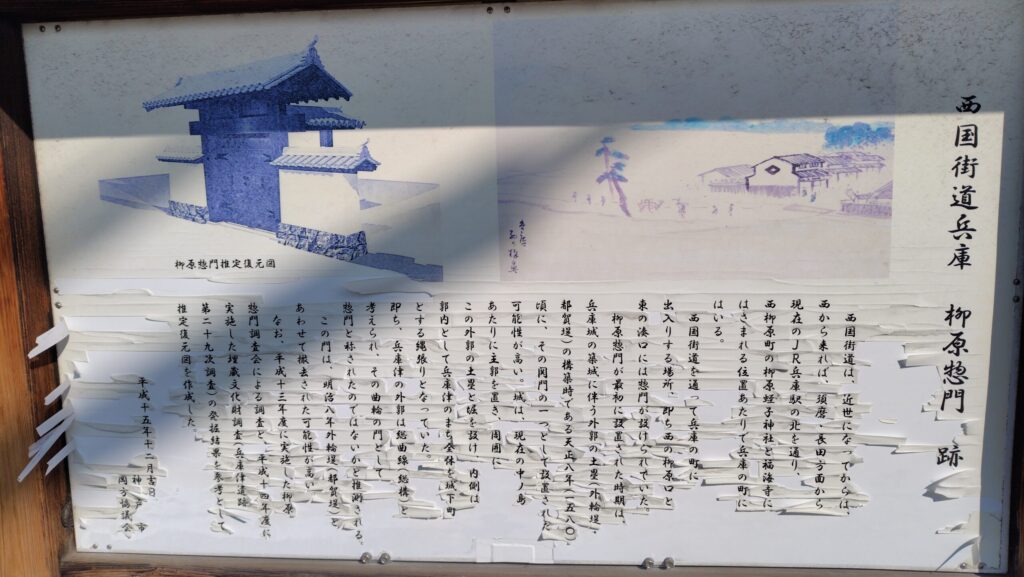 西国街道兵庫 柳原惣門 跡
西国街道は、近世になってからは、
西から来れば、須磨・長田方面から
現在のJR兵庫駅の北を通り、
西柳原町の柳原蛭子神社と福海寺に
はさまれる位置あたりで兵庫の町に
はいる。
西国街道を通って兵庫の町に
出入りする場所、即ち西の柳原口と
東の湊口には惣門が設けられていた。
柳原惣門が最初に設置された時期は、
兵庫城の築城に伴う外郭の土塁(外輪堤・
都賀堤)の構築時である天正八年(一五八〇)
頃に、その関門の一つとして設置された
可能性が高い。城は、現在の中ノ島
あたりに主郭を置き、周囲に
この外郭の土塁と堀を設け、内側は
郭内として兵庫津のまち全体を城下町
とする縄張りとなっていた。
即ち、兵庫津の外郭は総曲輪(総構)と
考えられ、その曲輪の門として
惣門と称されたのではないかと推測される。
この門は、明治八年外輪堤(都賀堤)と
あわせて撤去された可能性が高い。
なお、平成十三年度に実施した柳原
惣門調査会による調査と、平成十四年度に
実施した埋蔵文化財調査(兵庫津遺跡
第二十九次調査)の発掘結果を参考にして
推定復元図を作成した。
平成十五年十二月吉日
神戸市
岡方協議会
柳原惣門推定復元図